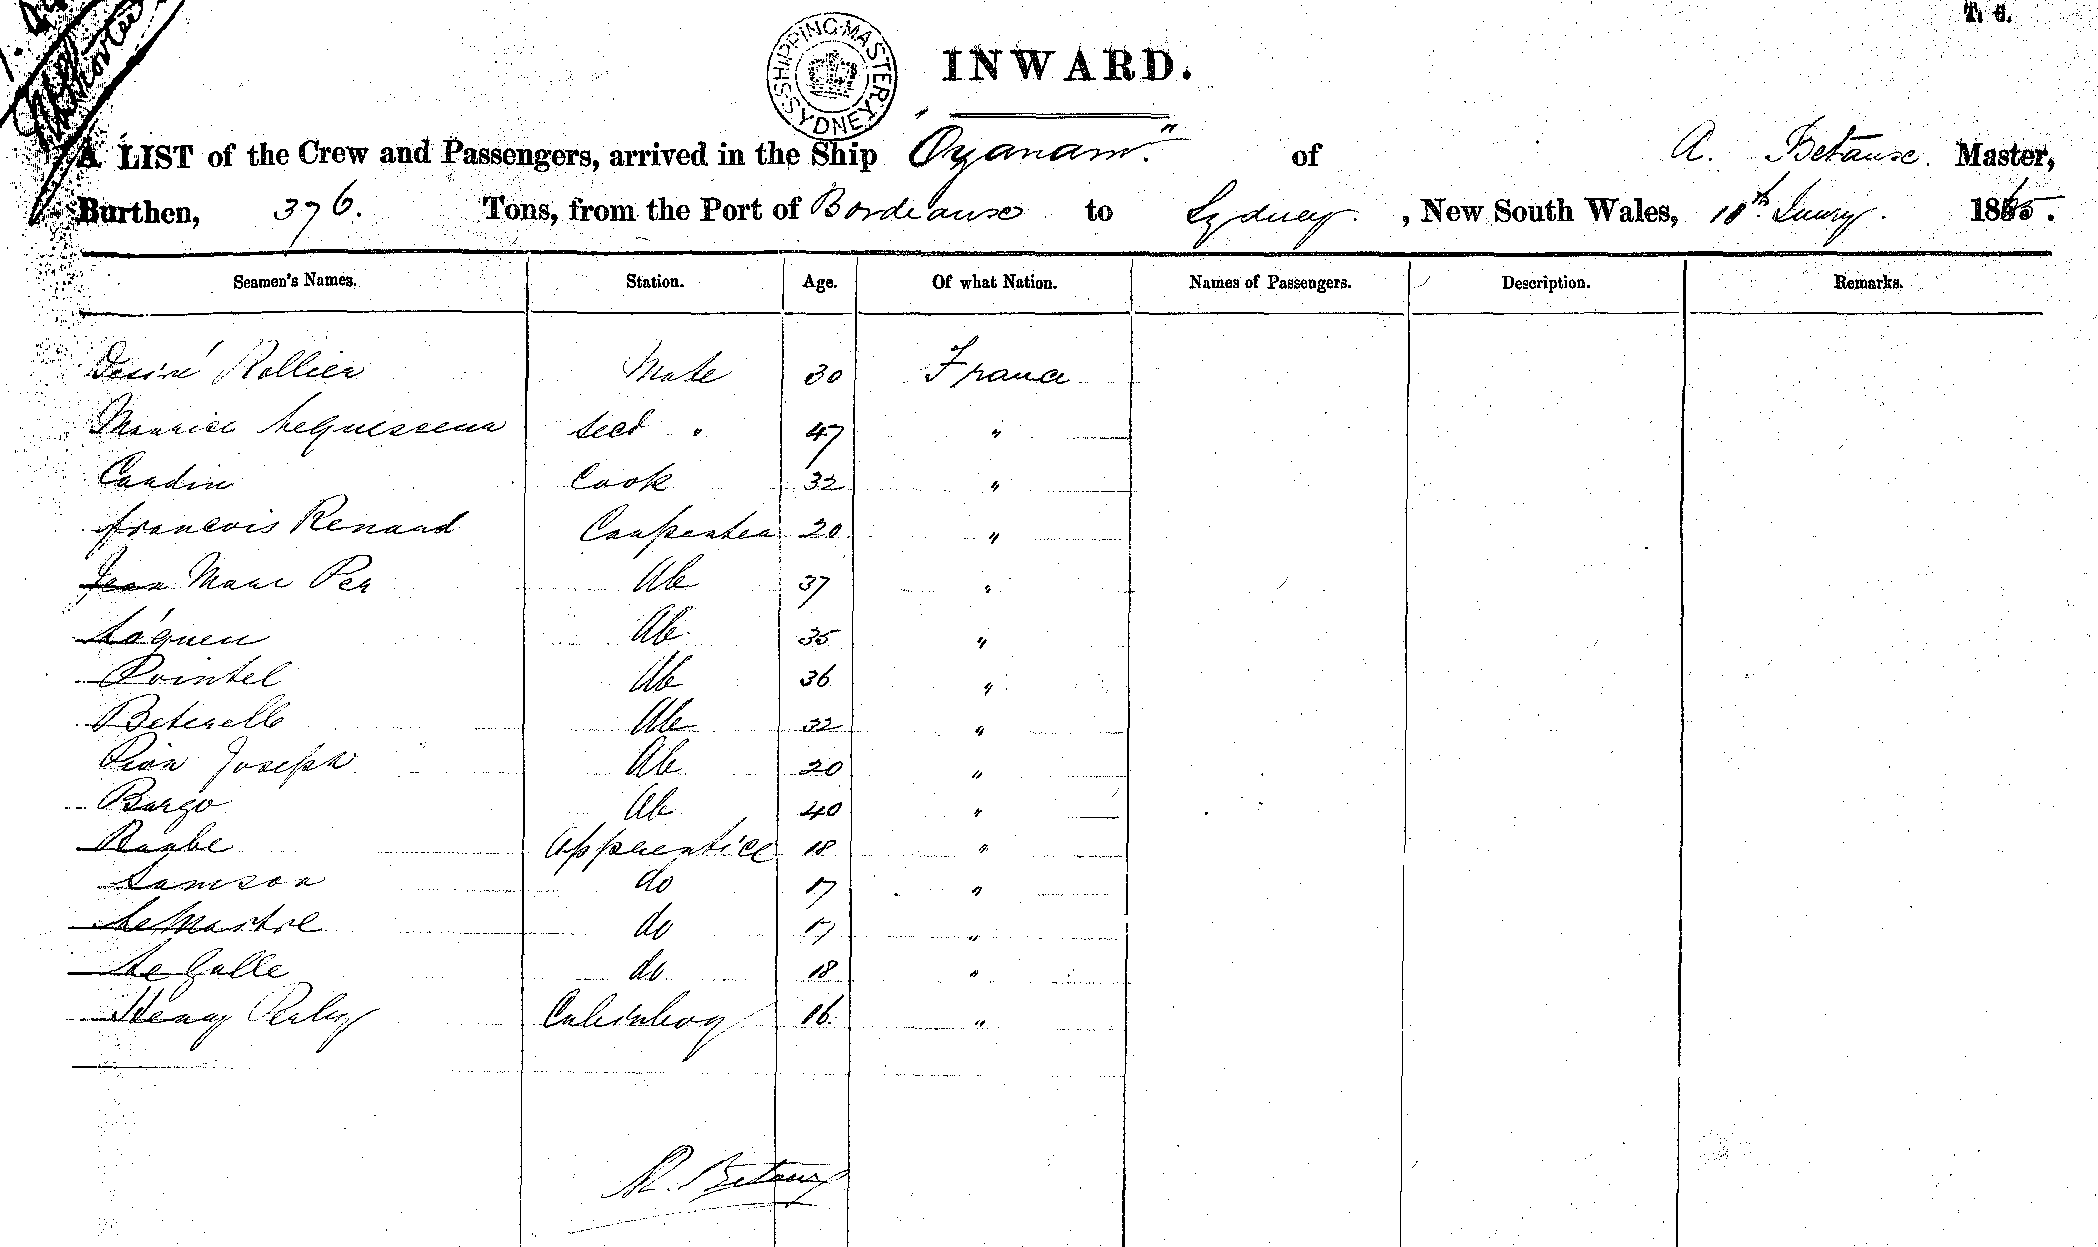 T. 6.
SHIPPING MASTER SYDNEY
INWARD.
A LIST of the Crew and Passengers, arrived in the Ship "Ozanam" of A. Betaux. Master,
Burthen, 376. Tons, from the Port of Bordeaux to Sydney. , New South Wales, 18th Jany. 1865.
Seamen's Names. Station. Age. Of what Nation. Names of Passengers. Description. Remarks.
Desiré Rollier Mate 30 France
Maurice Lequesseur Secd " 47 "
Caudin Cook 32 "
francois Renaud Carpenter 20 "
Jean Marie Per Ab 37 "
Ab 35 "
Pointel Ab 36 "
Beterelle Ab 32 "
Joseph Ab 20 "
Burgo Ab 40 "
Raube Apprentice 18 "
Samson do 17 "
Le Mastre do 17 "
Le Galle do 18 "
Henry Perley Cabinboy 16 "
A. Betaux